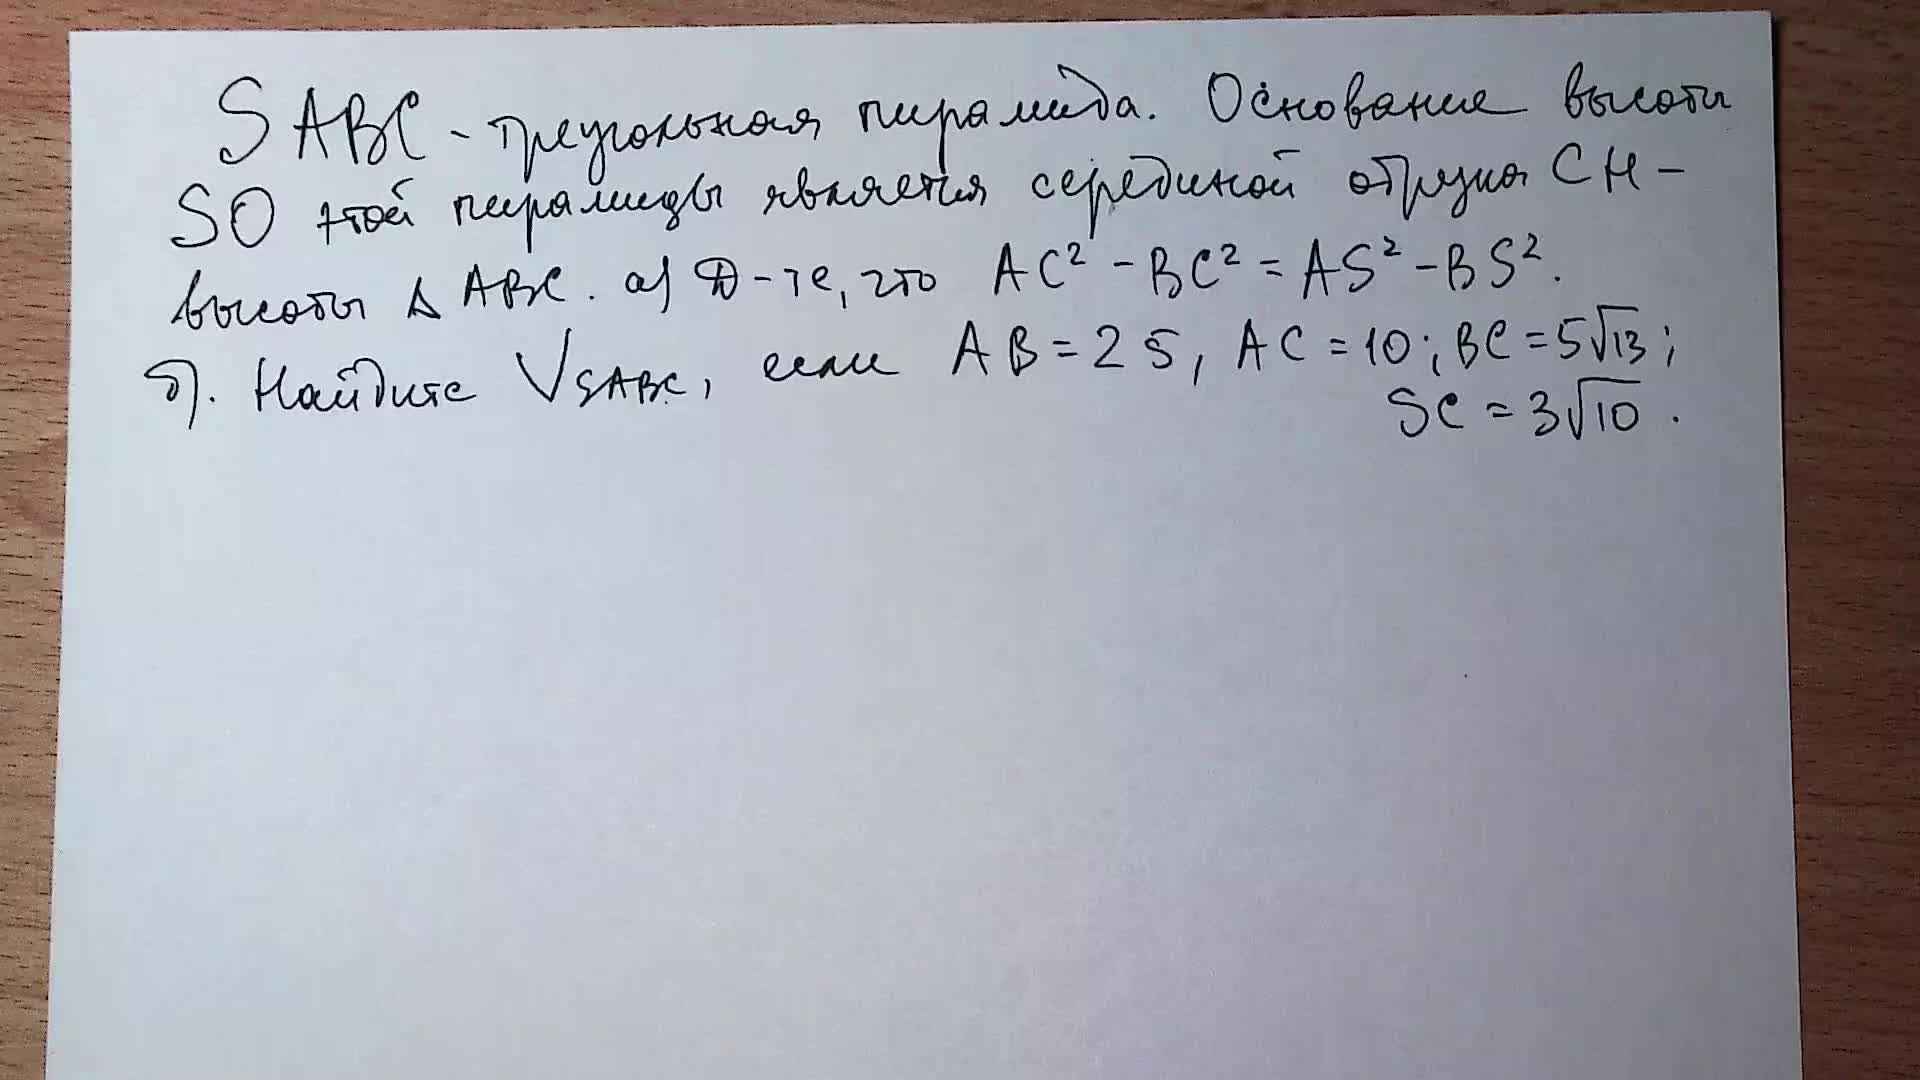 SABC - треугольная пирамида. Основание высоты
SO этой пирамиды является серединой отрезка CH -
высоты Δ ABC. а) Д-те, что AC² - BC² = AS² - BS².
б). Найдите V_SABC, если AB = 25, AC = 10; BC = 5√13;
SC = 3√10.